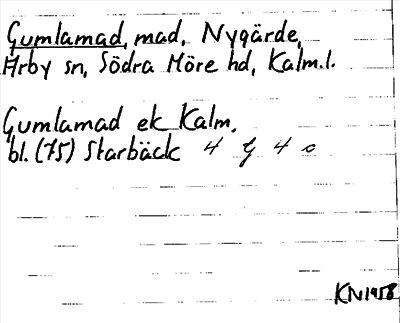 Gumlamad, mad, Nygärde,
Arby sn, Södra Möre hd, Kalm.l.
Gumlamad ek Kalm.
bl. (75) Starbäck 4 G 4 c
KN 1958